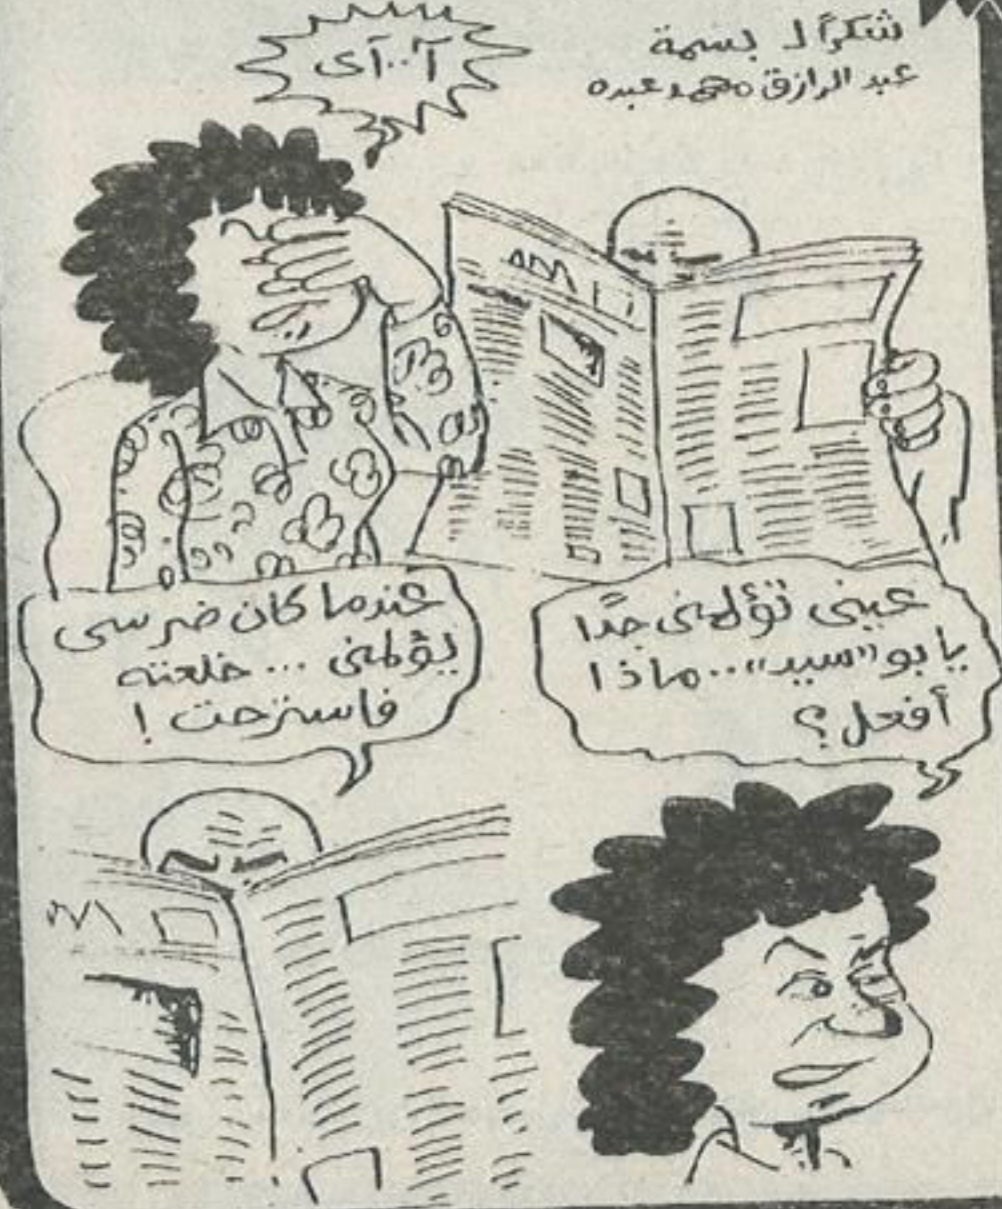 شكراً لـ بسمة
عبد الرازق محمد عبده
آ..آى
عينى تؤلمنى جدًا
يا بو «سيد»..ماذا
أفعل؟
عندما كان ضرسى
يؤلمنى ... خلعته
فاسترحت !